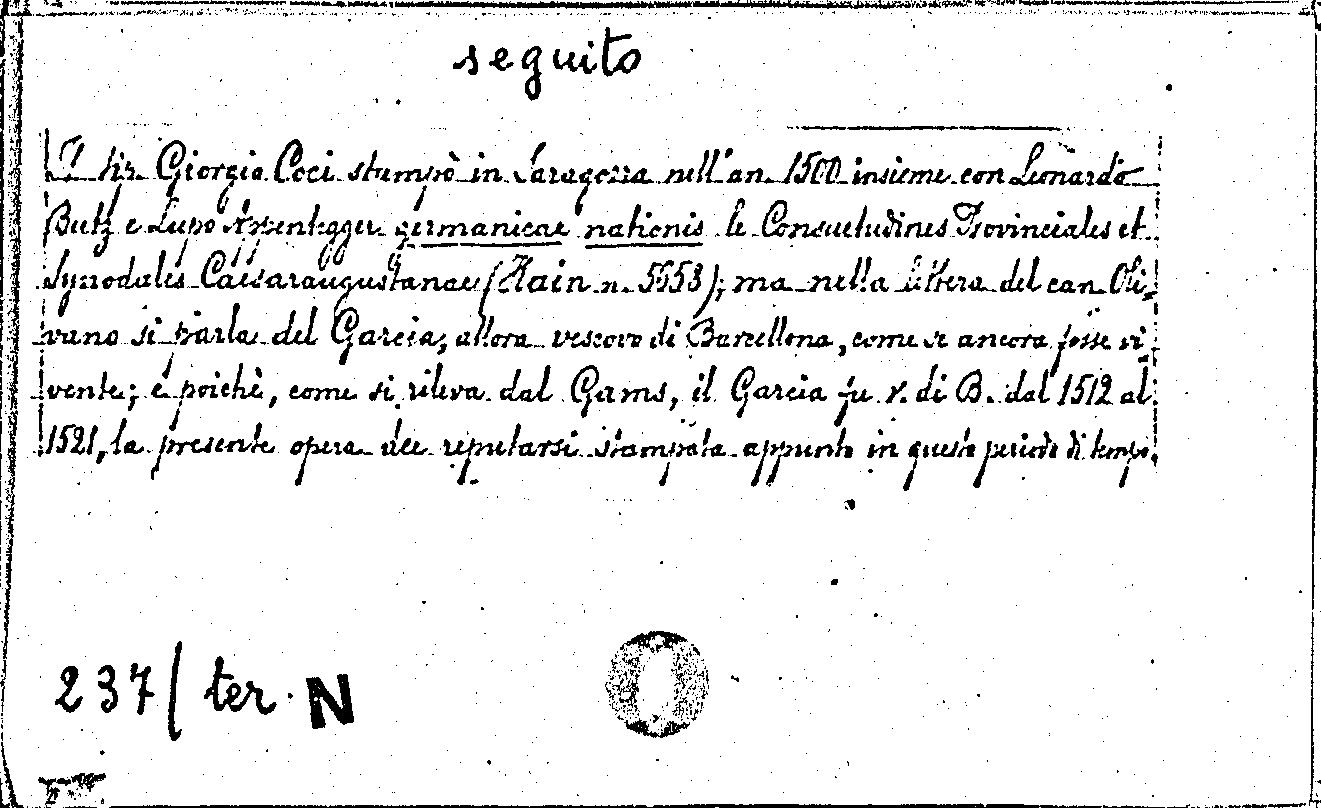 seguito
Il tip. Giorgio Coci stampò in Saragozza nell'an. 1500 insieme con Leonardo
Butz e Lupo Appentegger germanicae nationis le Consuetudines Provinciales et
Synodales Caesaraugustanae (Hain n. 5653); ma nella lettera del can. Oli-
vano si parla del Garcia, allora vescovo di Barcellona, come se ancora fosse vi-
vente; e poichè, come si rileva dal Gams, il Garcia fu v. di B. dal 1512 al
1521, la presente opera dee reputarsi stampata appunto in questo periodo di tempo.
237/ter N